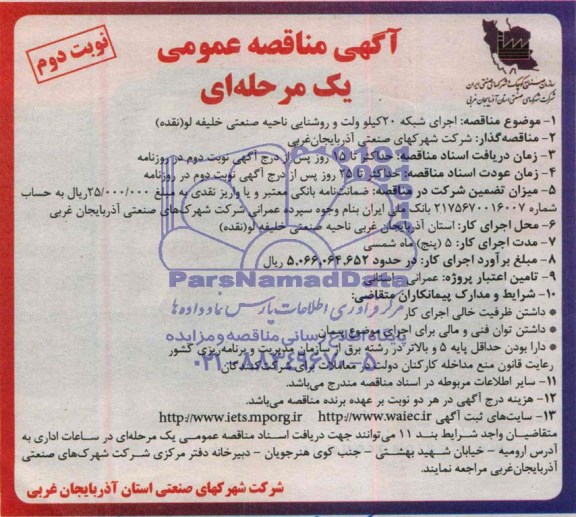 آگهی مناقصه عمومی
یک مرحله‌ای
نوبت دوم
سازمان صنایع کوچک و شهرکهای صنعتی ایران
شرکت شهرکهای صنعتی استان آذربایجان غربی
۱- موضوع مناقصه: اجرای شبکه ۲۰کیلو ولت و روشنایی ناحیه صنعتی خلیفه لو(نقده)
۲- مناقصه‌گذار: شرکت شهرکهای صنعتی آذربایجان‌غربی
۳- زمان دریافت اسناد مناقصه: حداکثر تا ۱۵ روز پس از درج آگهی نوبت دوم در روزنامه
۴- زمان عودت اسناد مناقصه: حداکثر تا ۲۵ روز پس از درج آگهی نوبت دوم در روزنامه
۵- میزان تضمین شرکت در مناقصه: ضمانت‌نامه بانکی معتبر و یا واریز نقدی به مبلغ ۲۵/۰۰۰/۰۰۰ریال به حساب
شماره ۲۱۷۵۶۷۰۱۶۰۰۷ بانک ملی ایران بنام وجوه سپرده عمرانی شرکت شهرک‌های صنعتی آذربایجان غربی
۶- محل اجرای کار: استان آذربایجان غربی ناحیه صنعتی خلیفه لو(نقده)
۷- مدت اجرای کار: ۵ (پنج) ماه شمسی
۸- مبلغ برآورد اجرای کار: در حدود ۵,۰۶۶,۰۶۴,۶۵۲ ریال
۹- تامین اعتبار پروژه: عمرانی - استانی
۱۰- شرایط و مدارک پیمانکاران متقاضی:
* داشتن ظرفیت خالی اجرای کار
* داشتن توان فنی و مالی برای اجرای موضوع پیمان
* دارا بودن حداقل پایه ۵ و بالاتر در رشته برق از سازمان مدیریت و برنامه‌ریزی کشور
رعایت قانون منع مداخله کارکنان دولت در معاملات برای شرکت‌کنندگان
۱۱- سایر اطلاعات مربوطه در اسناد مناقصه مندرج می‌باشد.
۱۲- هزینه درج آگهی در هر دو نوبت بر عهده برنده مناقصه می‌باشد.
۱۳- سایت‌های ثبت آگهی http://www.waiec.ir http://www.iets.mporg.ir
متقاضیان واجد شرایط بند ۱۱ می‌توانند جهت دریافت اسناد مناقصه عمومی یک مرحله‌ای در ساعات اداری به
آدرس ارومیه - خیابان شهید بهشتی - جنب کوی هنرجویان - دبیرخانه دفتر مرکزی شرکت شهرک‌های صنعتی
آذربایجان‌غربی مراجعه نمایند.
شرکت شهرکهای صنعتی استان آذربایجان غربی
ParsNamadData
مرکز فرآوری اطلاعات پارس نماد داده ها
پایگاه اطلاع رسانی مناقصه و مزایده
۰۲۱-۸۸۳۴۹۶۷۰-۵